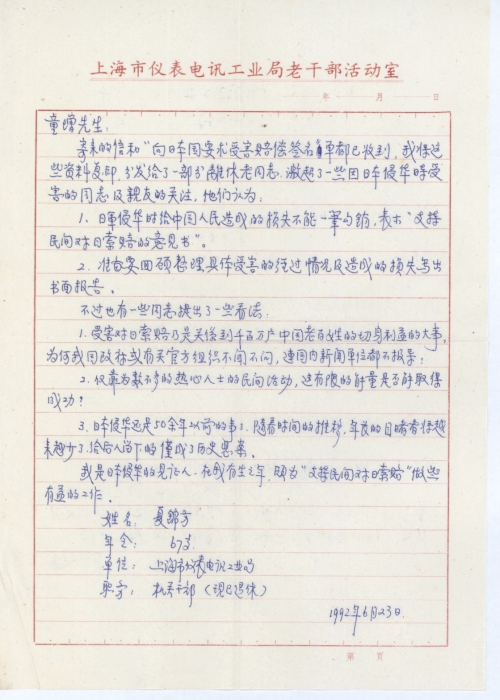 上海市仪表电讯工业局老干部活动室
年 月 日
童增先生:
寄来的信和"向日本国要求受害赔偿签名单都已收到,我将这
些资料复印,分发给了一部分离休老同志,激起了一些因日本侵华时受
害的同志及亲友的关注,他们认为:
1. 日军侵华时给中国人民造成的损失不能一笔勾销,表示"支持
民间对日索赔的意见书"。
2. 准备要回顾整理具体受害的经过情况及造成的损失写出
书面报告。
不过也有一些同志提出了一些看法:
1. 受害对日索赔乃是关系到千百万户中国老百姓的切身利益的大事,
为何我国政府或有关官方组织不闻不问,连国内新闻单位都不报导;
2. 仅靠为数不多的热心人士的民间活动,这有限的能量是否能取得
成功?
3. 日本侵华还是50余年以前的事了,随着时间的推移,年长的目睹者将越
来越少了,给后人留下的仅成了历史悬案。
我是日本侵华的见证人,在我有生之年,愿为"支持民间对日索赔"做些
有益的工作。
姓名: 夏锦芳
年令: 67岁
单位: 上海市仪表电讯工业局
职务: 机关干部(现已退休)
1992年6月23日
第 页